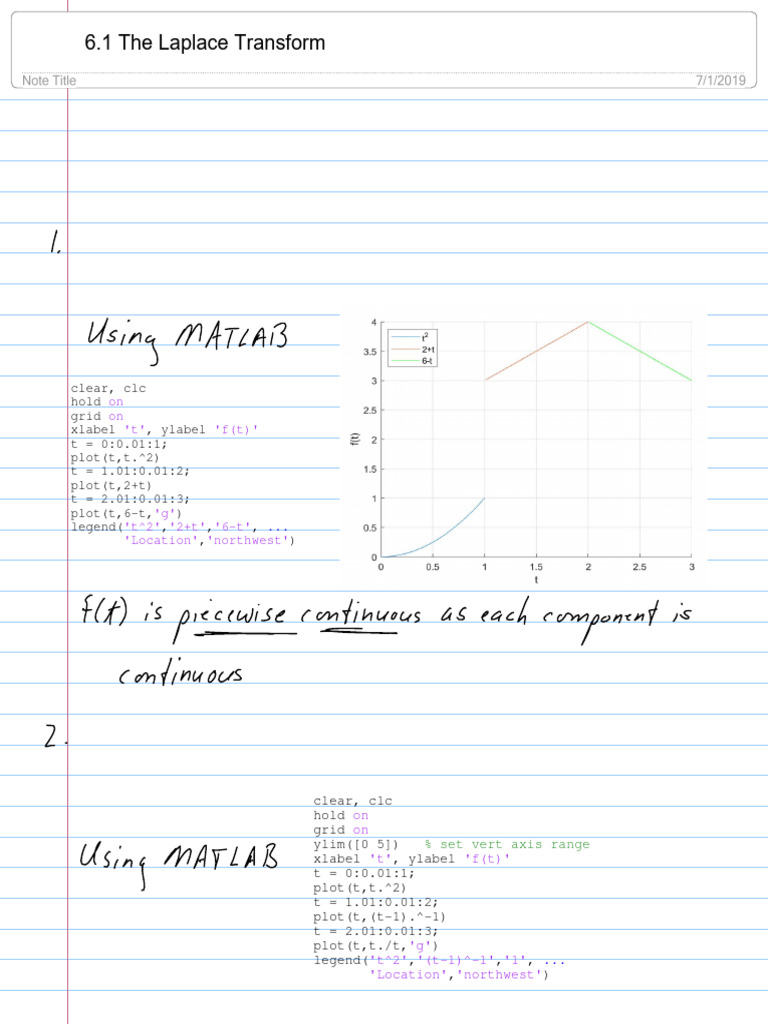 6.1 The Laplace Transform
Note Title
7/1/2019
1.
Using MATLAB
clear, clc
hold on
grid on
xlabel 't', ylabel 'f(t)'
t = 0:0.01:1;
plot(t,t.^2)
t = 1.01:0.01:2;
plot(t,2+t)
t = 2.01:0.01:3;
plot(t,6-t,'g')
legend('t^2','2+t','6-t', ...
'Location','northwest')
4
3.5
3
2.5
2
1.5
1
0.5
0
f(t)
t²
2+t
6-t
0 0.5 1 1.5 2 2.5 3
t
f(t) is piecewise continuous as each component is
continuous
2.
Using MATLAB
clear, clc
hold on
grid on
ylim([0 5]) % set vert axis range
xlabel 't', ylabel 'f(t)'
t = 0:0.01:1;
plot(t,t.^2)
t = 1.01:0.01:2;
plot(t,(t-1).^-1)
t = 2.01:0.01:3;
plot(t,t./t,'g')
legend('t^2','(t-1)^-1','1', ...
'Location','northwest')